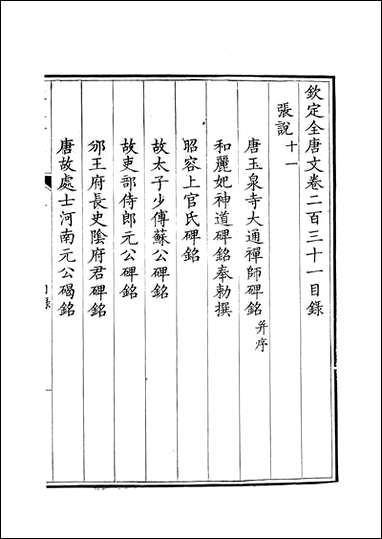 欽定全唐文卷二百三十一目錄
張說十一
唐玉泉寺大通禪師碑銘并序
和麗妃神道碑銘奉勅撰
昭容上官氏碑銘
故太子少傅蘇公碑銘
故吏部侍郎元公碑銘
邠王府長史陰府君碑銘
唐故處士河南元公碣銘